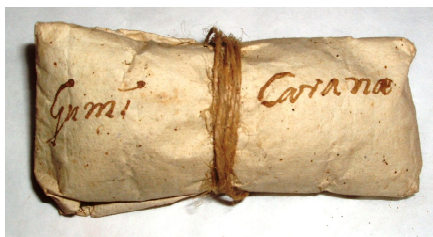 Gumi Caranæ